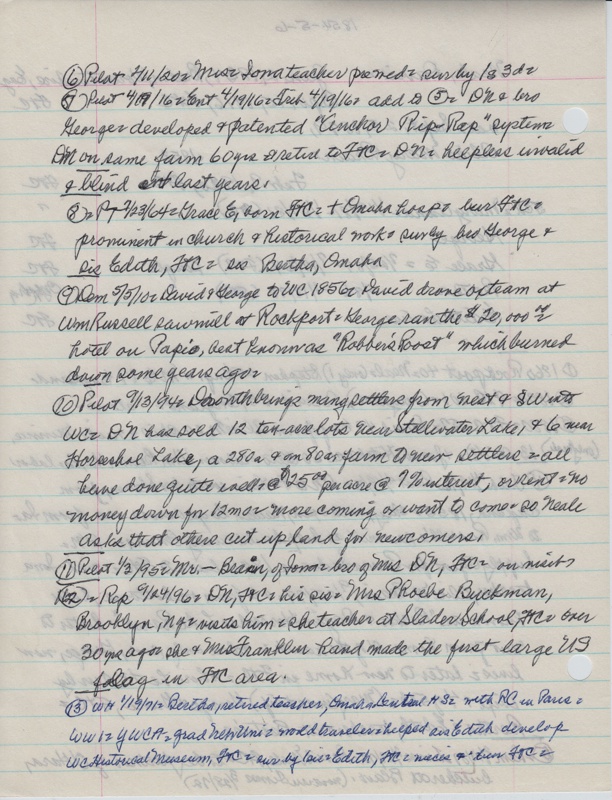 ⑥ Pilot 2/11/20= Miss Iona teacher pow med= sur by 1s 3d=
⑦ Pilot 4/19/16= Ent 4/19/16= Trib 4/19/16= add to ⑤= DN & bro
George= developed & patented "Kinchor Rip-Rap" system=
DN on same farm 60 yrs & retired to FtC= DN= helpless invalid
& blind last years.
⑧= PT 2/23/64= Grace E, born FtC= + Omaha hosp= bur FtC=
prominent in church & historical work= sur by bro George &
sis Edith, FtC= sis Bertha, Omaha
⑨ Dem 5/5/10= David & George to WC 1856= David drove ox team at
Wm Russell sawmill at Rockport= George ran the $20,000 00
hotel on Papio, best known as "Robbers Roost" which burned
down some years ago=
⑩ Pilot 9/13/94= Drouth brings many settlers from west & SW into
WC= DN has sold 12 ten-acre lots near Stillwater Lake, & 6 near
Horseshoe Lake, a 280a & an 80a farm to new settlers= all
have done quite well= @ $25 00 per acre @ 7% interest, or rent= no
money down for 12 mo= more coming or want to come= so Neale
asks that others cut up land for newcomers.
⑪ Pilot 1/3/95= Mr.- of Iowa= bro of Mrs DN, FtC= on visit=
⑫= Rep 9/24/96= DN, FtC= his sis= Mrs Phoebe Buckman,
Brooklyn, Ny= visits him= she teacher at Slader School, FtC= over
30 yrs ago= she & Mrs Franklin Rand made the first large US
flag in FtC area.
⑬ WH 1/19/71= Bertha, retired teacher, Omaha Central HS= with RC in Paris=
WW1= YWCA= grad Neb Uni= world traveler= helped sis Edith develop
WC Historical Museum, FtC= sur by sis= Edith, FtC= nieces= bur FtC=